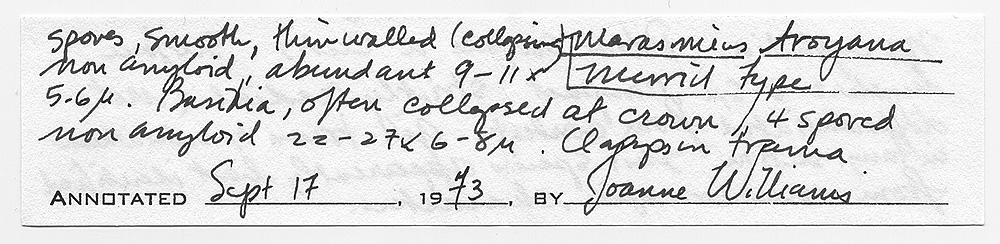 spores, smooth, thin walled (collapsing) Marasmius troyana
non amyloid, abundant 9-11 x Murrill type
5-6µ. Basidia, often collapsed at crown, 4 spored
non amyloid 22-27 x 6-8µ. Clamps in trama
ANNOTATED Sept 17, 1973, BY Joanne Williams